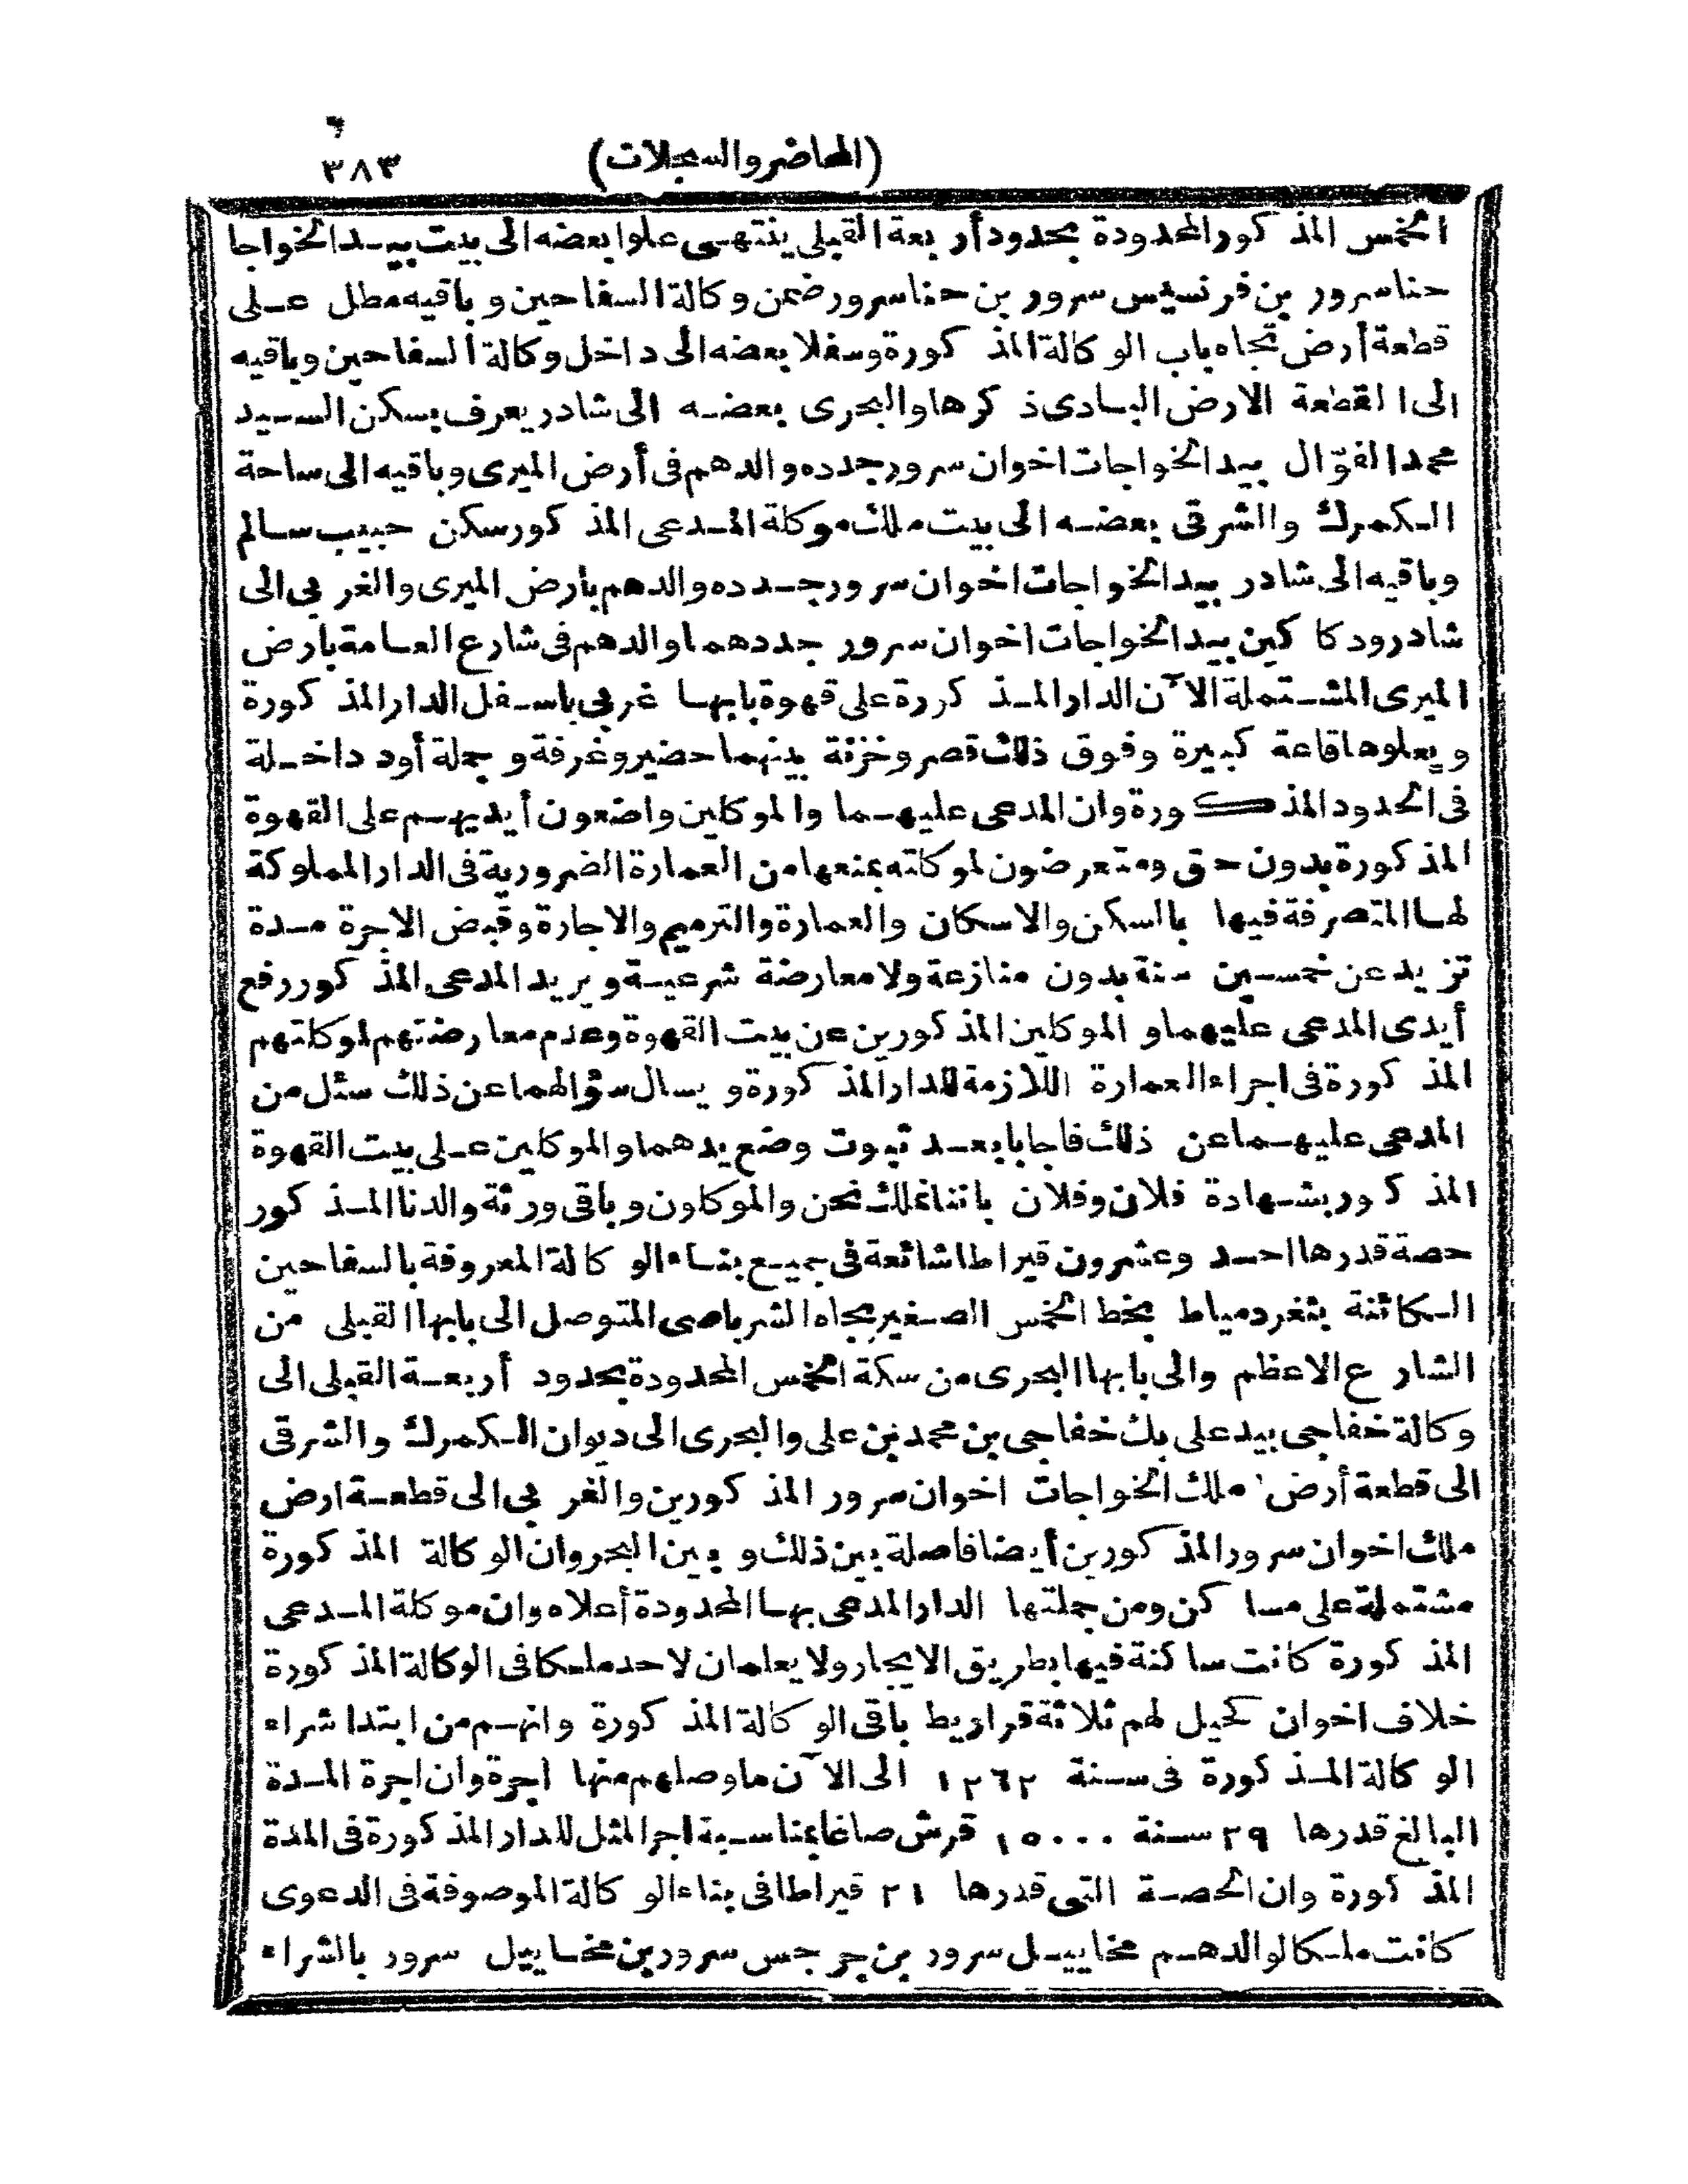 (المحاضر والسجلات)
٣٨٣
الخمس المذكور المحدودة بحدود أربعة القبلى ينتهى علوا بعضه الى بيت بيد الخواجا
حنا سرور بن فرنسيس سرور بن حنا سرور ضمن وكالة السفاحين وباقيه مطل على
قطعة أرض تجاه باب الوكالة المذكورة وسفلا بعضه الى داخل وكالة السفاحين وباقيه
الى القطعة الارض البادى ذكرها والبحرى بعضه الى شادر يعرف بسكن السيد
محمد الفوّال بيد الخواجات اخوان سرور جدده والدهم فى أرض الميرى وباقيه الى ساحة
الكمرك والشرقى بعضه الى بيت ملك موكلة المدعى المذكور سكن حبيب سالم
وباقيه الى شادر بيد الخواجات اخوان سرور جدده والدهم بارض الميرى والغربى الى
شادر ودكاكين بيد الخواجات اخوان سرور جددهما والدهم فى شارع العامة بارض
الميرى المشتملة الآن الدار المذكررة على قهوة بابها غربى باسفل الدار المذكورة
ويعلوها قاعة كبيرة وفوق ذلك قصر وخزنة بينهما حضير وغرفة وجملة أود داخلة
فى الحدود المذكورة وان المدعى عليهما والموكلين واضعون أيديهم على القهوة
المذكورة بدون حق ومتعرضون لموكلته بمنعها من العمارة الضرورية فى الدار المملوكة
لها المتصرفة فيها بالسكن والاسكان والعمارة والترميم والاجارة وقبض الاجرة مدة
تزيد عن خمسين سنة بدون منازعة ولا معارضة شرعية ويريد المدعى المذكور رفع
أيدى المدعى عليهما والموكلين المذكورين عن بيت القهوة وعدم معارضتهم لموكلتهم
المذكورة فى اجراء العمارة اللازمة للدار المذكورة ويسال سؤالهما عن ذلك سئل من
المدعى عليهما عن ذلك فاجابا بعد ثبوت وضع يدهما والموكلين على بيت القهوة
المذكور بشهادة فلان وفلان باننا نملك نحن والموكلون وباقى ورثة والدنا المذكور
حصة قدرها احد وعشرون قيراطا شائعة فى جميع بناء الوكالة المعروفة بالسفاحين
الكائنة بثغر دمياط بخط الخمس الصغير تجاه الشرباصى المتوصل الى بابها القبلى من
الشارع الاعظم والى بابها البحرى من سكة الخمس المحدودة بحدود أربعة القبلى الى
وكالة خفاجى بيد على بك خفاجى بن محمد بن على والبحرى الى ديوان الكمرك والشرقى
الى قطعة أرض ملك الخواجات اخوان سرور المذكورين والغربى الى قطعة ارض
ملك اخوان سرور المذكورين أيضا فاصلة بين ذلك وبين البحر وان الوكالة المذكورة
مشتملة على مساكن ومن جملتها الدار المدعى بها المحدودة أعلاه وان موكلة المدعى
المذكورة كانت ساكنة فيها بطريق الايجار ولا يعلمان لاحد ملكا فى الوكالة المذكورة
خلاف اخوان كحيل لهم ثلاثة قراريط باقى الوكالة المذكورة وانهم من ابتدا شراء
الوكالة المذكورة فى سنة ١٢٦٢ الى الآن ما وصلهم منها اجرة وان اجرة المدة
البالغ قدرها ٢٩ سنة ١٥٠٠٠ قرش صاغا بمناسبة اجر المثل للدار المذكورة فى المدة
المذكورة وان الحصة التى قدرها ٢١ قيراطا فى بناء الوكالة الموصوفة فى الدعوى
كانت ملكا لوالدهم مخاييل سرور بن جرجس سرور بن مخاييل سرور بالشراء